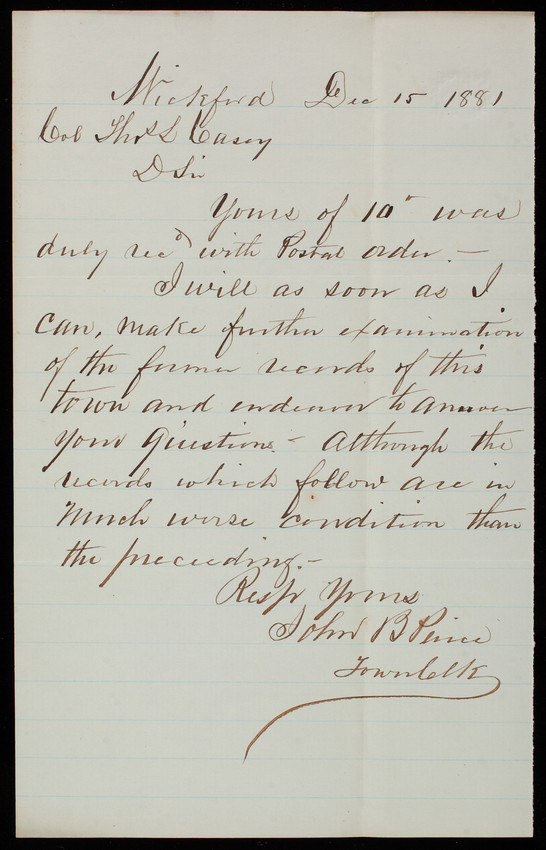 Wickford Dec 15 1881
Col Thos L Casey
D Sir
Yours of 10" was
duly recd with Postal order. —
I will as soon as I
can, make further examination
of the former records of this
town and endeavor to answer
your Questions. — Although the
records which follow are in
much worse condition than
the preceeding. —
Resp Yours
John B Peirce
Town Clk